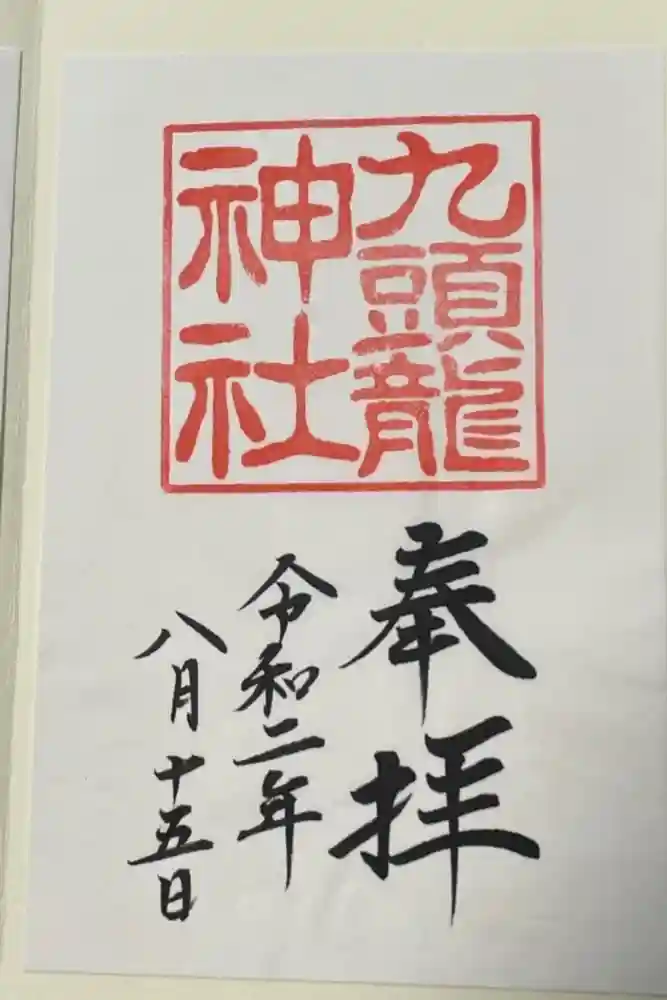 九頭龍
神社
奉拝
令和二年
八月十五日